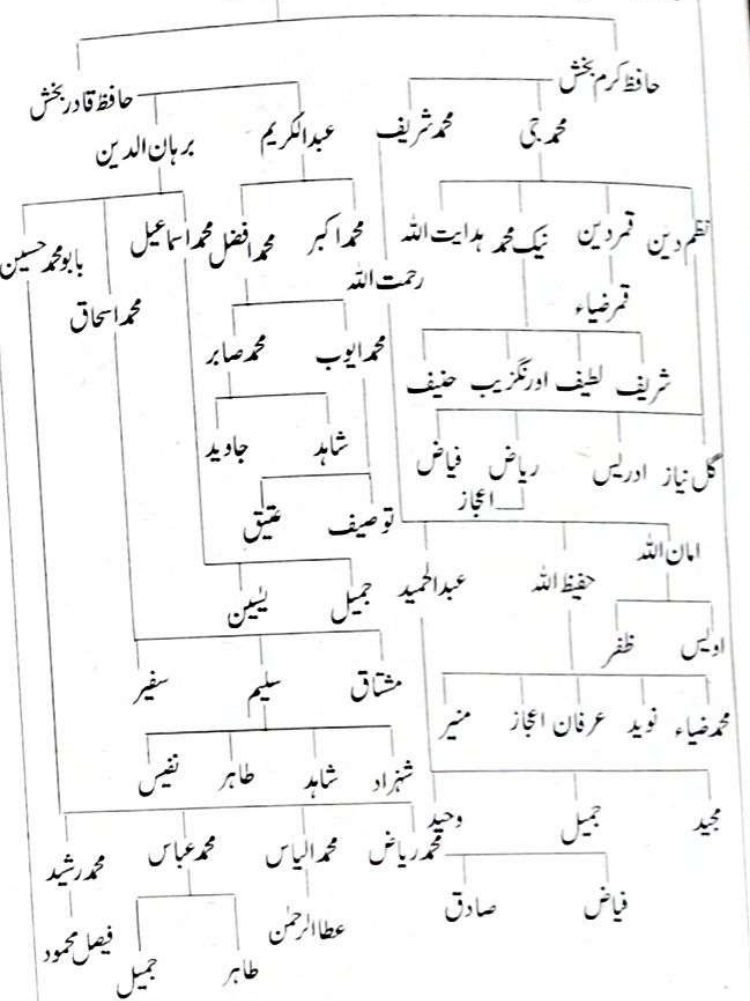 حافظ کرم بخش
حافظ قادر بخش
محمد جی
محمد شریف
عبدالکریم
برہان الدین
نظم دین
قمر دین
نیک محمد
ہدایت اللہ
محمد اکبر
محمد افضل
محمد اسماعیل
بابو محمد حسین
رحمت اللہ
قمر ضیاء
محمد اسحاق
محمد ایوب
محمد صابر
شریف
لطیف
اورنگزیب
حنیف
شاہد
جاوید
گل نیاز
ادریس
ریاض
فیاض
اعجاز
توصیف
عتیق
امان اللہ
حفیظ اللہ
عبدالحمید
جمیل
یٰسین
اویس
ظفر
مشتاق
سلیم
سفیر
محمد ضیاء
نوید
عرفان
اعجاز
منیر
شہزاد
شاہد
طاہر
نفیس
مجید
جمیل
وحید
محمد ریاض
محمد الیاس
محمد عباس
محمد رشید
فیاض
صادق
عطاالرحمٰن
فیصل محمود
طاہر
جمیل